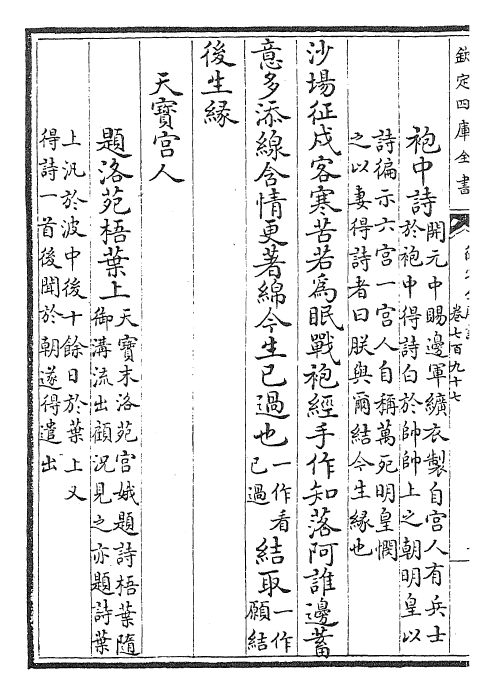 欽定四庫全書
卷七百九十七
袍中詩
開元中賜邊軍纊衣製自宫人有兵士
於袍中得詩白於帥帥上之朝明皇以
詩徧示六宫一宫人自稱萬死明皇憫
之以妻得詩者曰朕與爾結今生緣也
沙場征戍客寒苦若為眠戰袍經手作知落阿誰邊蓄
意多添線含情更著綿今生已過也一作看已過結取一作願結
後生緣
天寶宫人
題洛苑梧葉上
天寶末洛苑宫娥題詩梧葉隨
御溝流出顧況見之亦題詩葉
上汎於波中後十餘日於葉上又
得詩一首後聞於朝遂得遣出